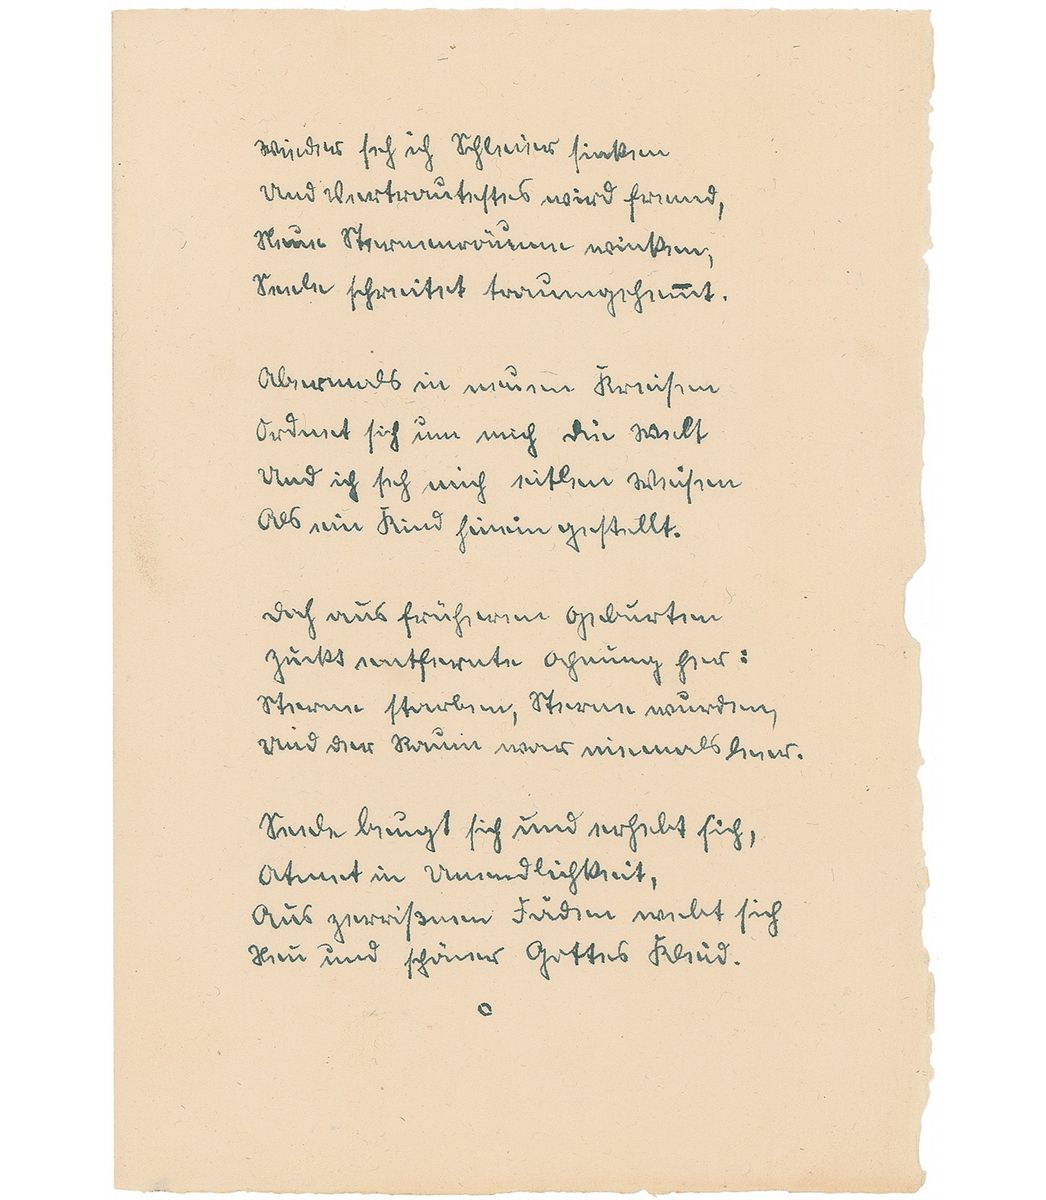 Wieder seh ich Schleier sinken
Und Vertrautestes wird fremd,
Neue Sternenräume winken,
Seele schreitet traumgehemmt.
Abermals in neuen Kreisen
Ordnet sich um mich die Welt
Und ich seh mich eitlen Weisen
Als ein Kind hinein gestellt.
Doch aus früheren Geburten
Zuckt entfernte Ahnung her:
Sterne starben, Sterne wurden,
Und der Raum war niemals leer.
Seele beugt sich und erhebt sich,
Atmet in Unendlichkeit,
Aus zerrißnen Fäden webt sich
Neu und schöner Gottes Kleid.